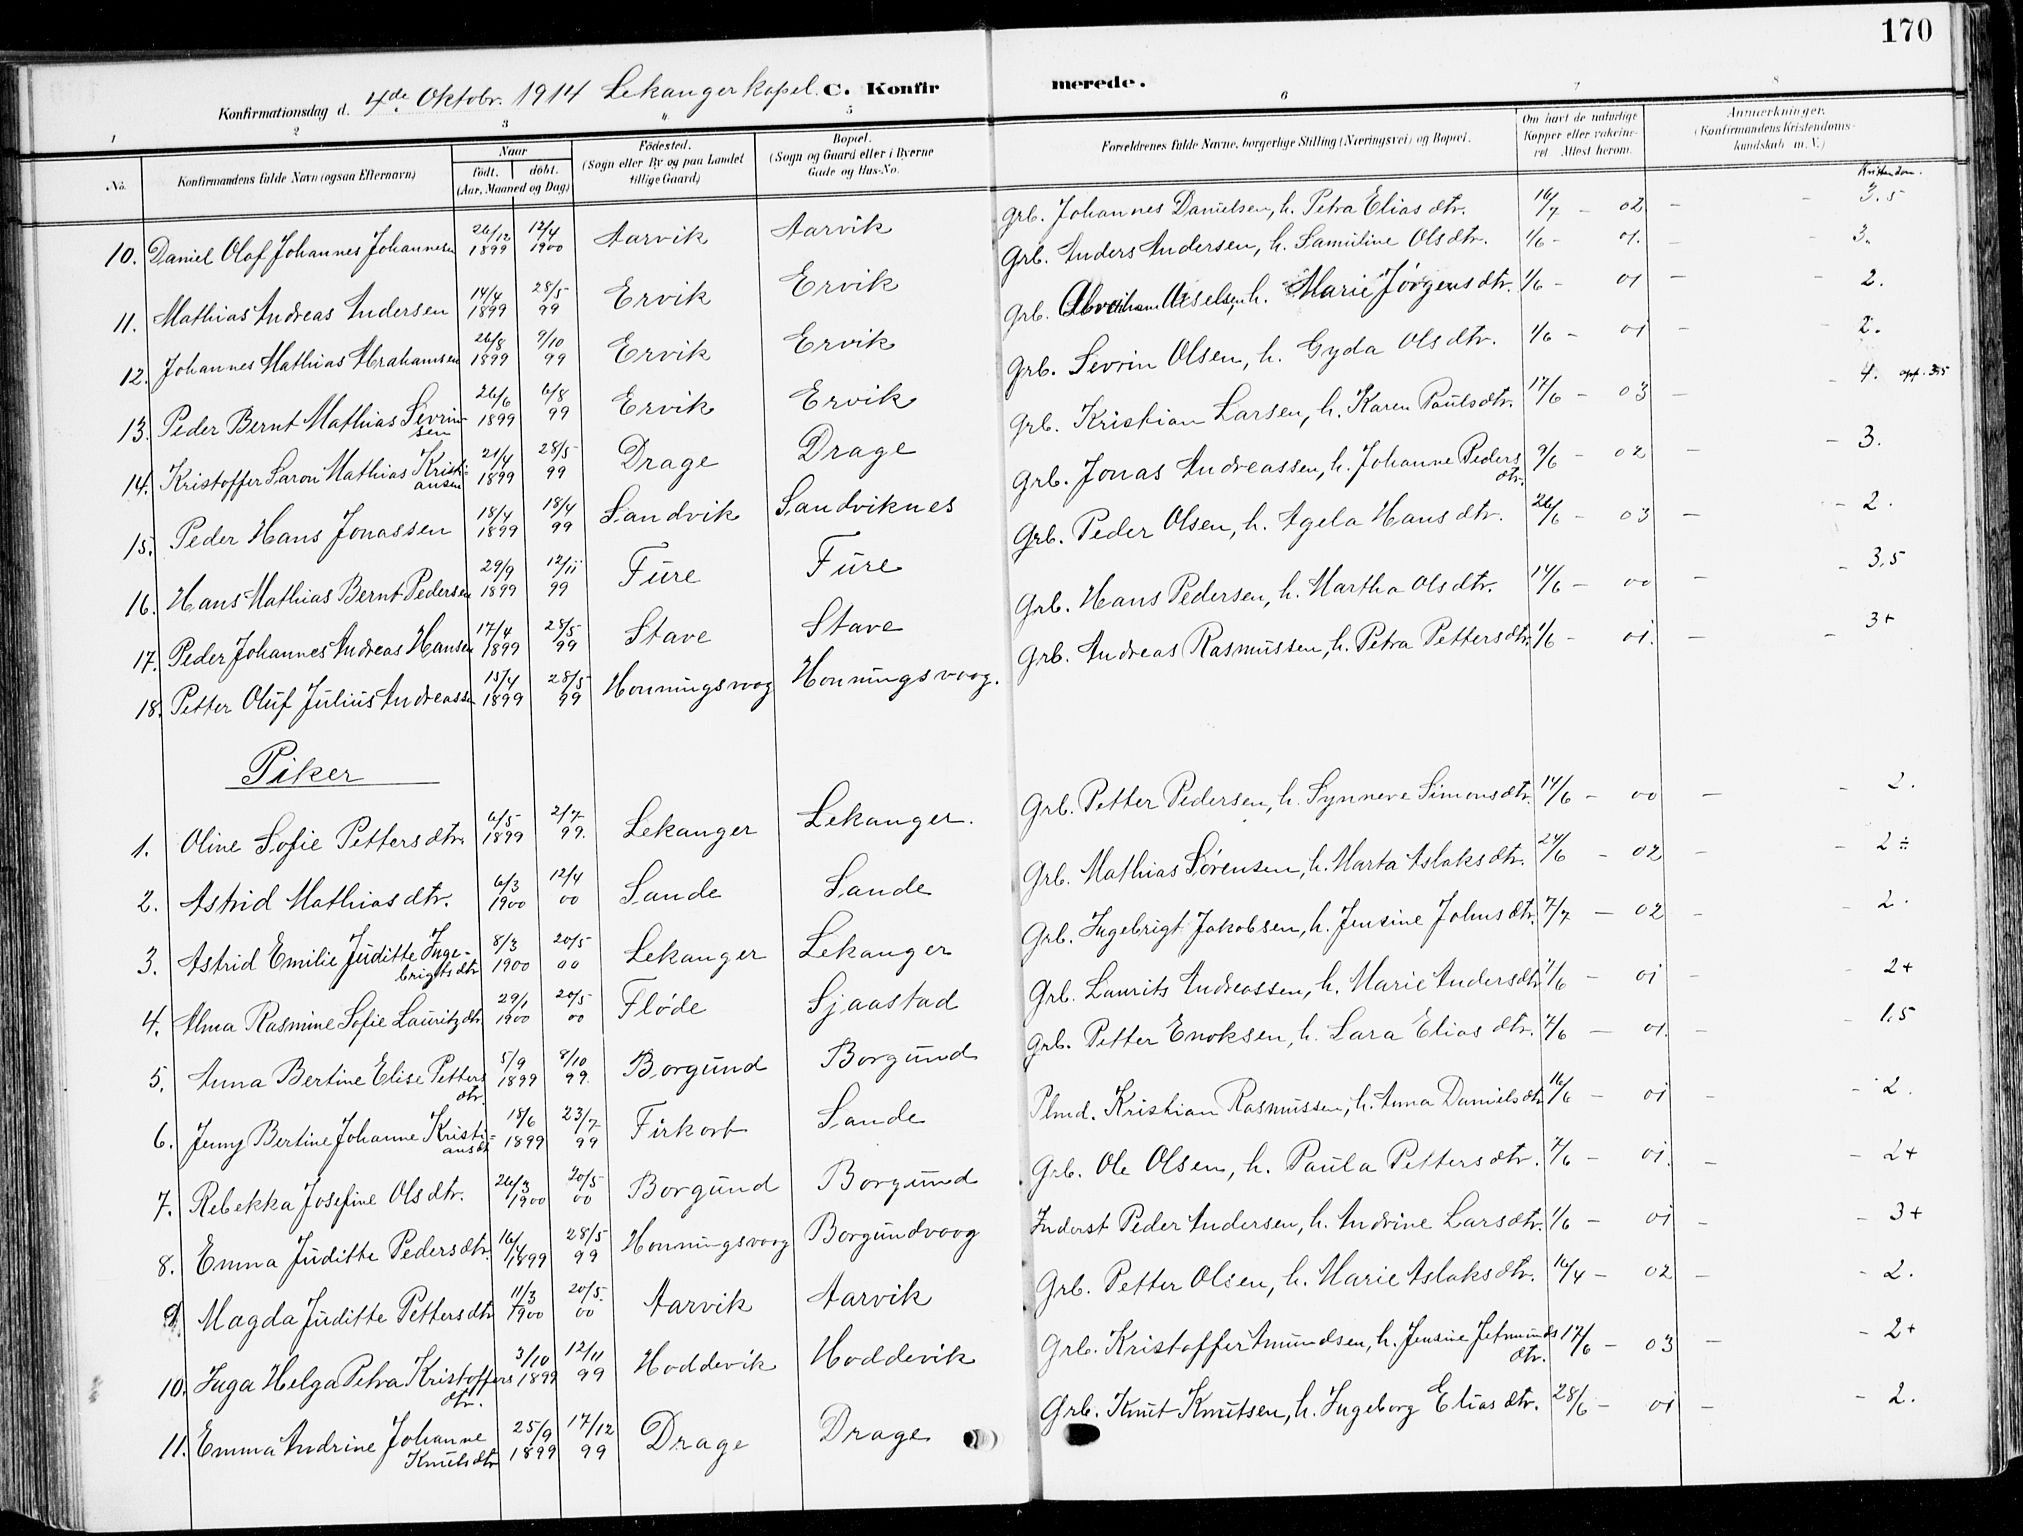 170
Konfirmationsdag d. 4de Oktobr. 1914 Lekanger kapel. C. Konfirmerede.
1 2 3 4. 5 6 7 8
No. Konfirmandens fulde Navn (ogsaa Efternavn) Naar født. døbt. (Aar, Maaned og Dag) Fødested. (Sogn eller By og paa Landet tillige Gaard) Bopæl. (Sogn og Gaard eller i Byerne Gade og Hus-No. Forældrenes fulde Navne, borgerlige Stilling (Næringsvei) og Bopæl. Om havt de naturlige Kopper eller vakcineret. Attest herom. Anmærkninger. (Konfirmandens Kristendomskundskab m. V.)
Kristendom.
10. Daniel Olaf Johannes Johannesen 26/12 1899 12/4 1900 Aarvik Aarvik Grb. Johannes Danielsen, h. Petra Eliasdtr. 16/7 - 02 - - 3.5
11. Mathias Andreas Andersen 14/4 1899 28/5 99 Ervik Ervik Grb. Anders Andersen, h. Samuline Olsdtr. 1/6 - 01. - 3.
12. Johannes Mathias Abrahamsen 26/8 1899 9/10 99 Ervik Ervik Grb. Abraham h. Marie Jørgensdtr. 1/6 - 01 - - 2.
13. Peder Bernt Mathias Sevrinsen 26/6 1899 6/8 99 Ervik Ervik Grb. Sevrin Olsen, h. Gyda Olsdtr. 1/6 - 01 - - 2.
14. Kristoffer Saron Mathias Kristiansen 21/4 1899 28/5 99 Drage Drage Grb. Kristian Larsen, h. Karen Paulsdtr. 17/6 - 03 - - 4. opf. 3.5
15. Peder Hans Jonassen 18/4 1899 18/4 99 Sandvik Sandviknes Grb. Jonas Andreassen, h. Johanne Pedersdtr. 9/6 - 02 - - 3.
16. Hans Mathias Bernt Pedersen 29/9 1899 12/11 99 Fure Fure Grb. Peder Olsen, h. Agela Hansdtr. 26/6 - 03 - - 2.
17. Peder Johannes Andreas Hansen 17/4 1899 28/5 99 Stave Stave Grb. Hans Pedersen, h. Martha Olsdtr. 14/6 - 00 - - 3,5
18. Petter Oluf Julius Andreassen 15/4 1899 28/5 99 Honningsvaag Honningsvaag. Grb. Andreas Rasmussen, h. Petra Pettersdtr. 1/6 - 01. - - 3+
Piker
1. Oline Sofie Pettersdtr. 6/5 1899 2/7 99. Lekanger Lekanger. Grb. Petter Pedersen, h. Synneve Simonsdtr. 14/6 - 00 - - 2.
2. Astrid Mathiasdtr. 6/3 1900 12/4 00 Sande Sande Grb. Mathias Sørensen, h. Marta Aslaksdtr. 24/6 - 02 - - 2÷
3. Astrid Emilie Juditte Ingebrigtsdtr 8/3 1900 20/5 00 Lekanger Lekanger Grb. Ingebrigt Jakobsen, h. Jensine Johnsdtr. 7/7 - 02 - - 2.
4. Alma Rasmine Sofie Lauritzdtr 29/1 1900 20/5 00 Fløde Sjaastad Grb. Laurits Andreassen, h. Marie Andersdtr 7/6 - 01 - - 2+
5. Anna Bertine Elise Pettersdtr. 5/9 1899 8/10 99. Borgund Borgund Grb. Petter Enoksen, h. Lara Eliasdtr. 7/6 - 01. - - 1.5
6. Jenny Bertine Johanne Kristiansdt 18/6 1899 23/7 99 Sande Plmd. Kristian Rasmussen, h. Anna Danielsdtr 16/6 - 01 - - 2.
7. Rebekka Josefine Olsdtr. 26/3 1900 20/5 00 Borgund Borgund Grb. Ole Olsen, h. Paula Pettersdtr. 7/6 - 01. - - 2+
8. Emma Juditte Pedersdtr. 16/4 1899 28/5 99 Honningsvaag Borgundvaag Inderst Peder Andersen, h. Andrine Larsdtr. 1/6 - 01 - - 3+
9. Magda Juditte Pettersdtr 11/3 1900 20/5. 00 Aarvik Aarvik Grb. Petter Olsen, h. Marie Aslaksdtr. 16/4 - 02 - - 2.
10. Inga Helga Petra Kristoffersdtr. 3/10 1899 12/11 99 Hoddevik Hoddevik Grb. Kristoffer Amundsen, h. Jensine Jetmundsdtr. 17/6 - 03 - - 2+
11. Emma Andrine Johanne Knutsdtr 25/9 1899 17/12 99 Drage Drage Grb. Knut Knutsen, h. Ingeborg Eliasdtr. 28/6 - 01 - - 2.